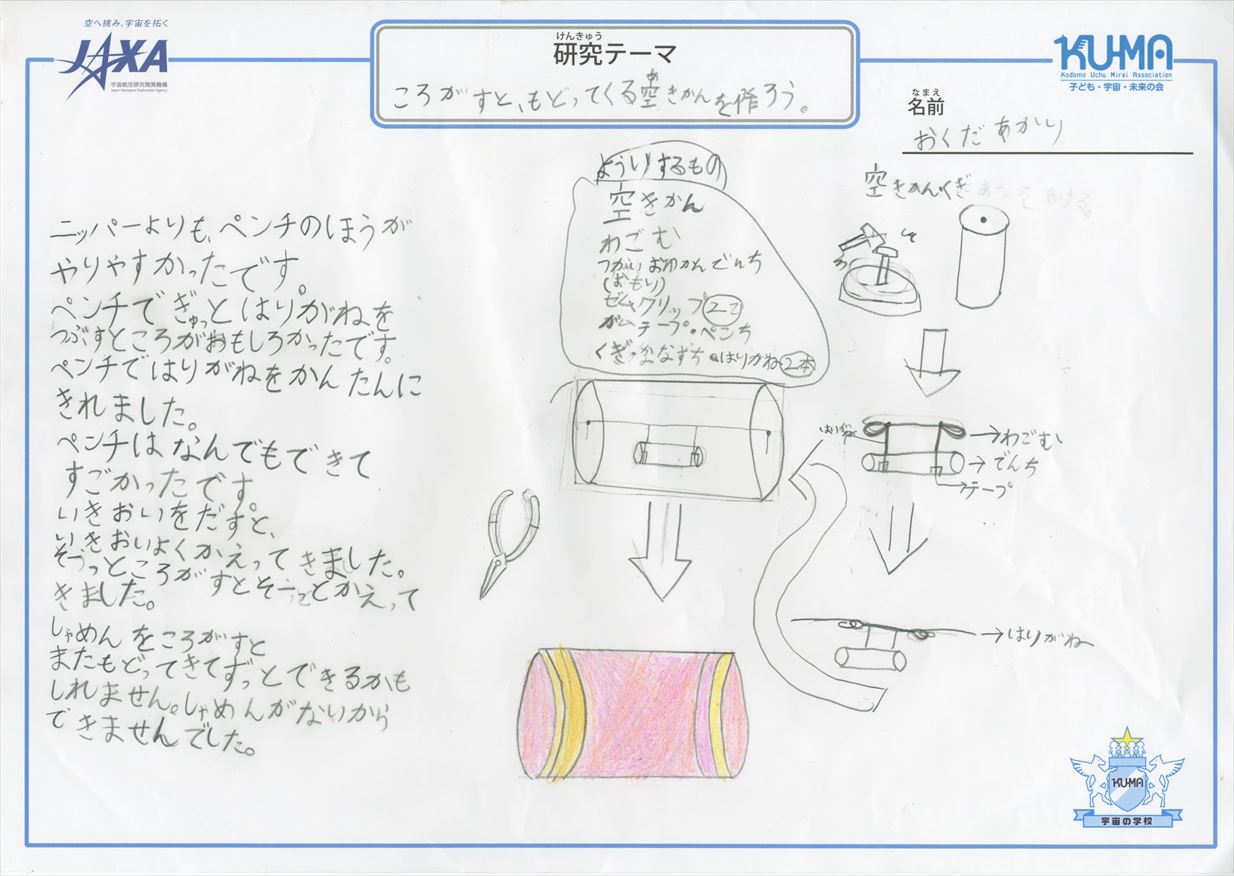 空へ挑み、宇宙を拓く
JAXA
宇宙航空研究開発機構
Japan Aerospace Exploration Agency
けんきゅう
研究テーマ
あ
ころがすと、もどってくる空きかんを作ろう。
KU-MA
Kodomo Uchu Mirai Association
子ども・宇宙・未来の会
なまえ
名前
おくだ あかり
ニッパーよりも、ペンチのほうが
やりやすかったです。
ペンチでぎゅっとはりがねを
つぶすところがおもしろかったです。
ペンチではりがねをかんたんに
きれました。
ペンチはなんでもできて
すごかったです
いきおいをだすと、
いきおいよくかえってきました。
そーっところがすとそーっとかえって
きました。
しゃめんをころがすと
またもどってきてずっとできるかも
しれません。しゃめんがないから
できませんでした。
よういするもの
空きかん
わごむ
つかいおわかんでんち
(おもり)
ゼムクリップ2こ
ガムテープ・ペンち
くぎ・かなずち・はりがね2本
空きかん・くぎ あなをあける。
はりがね
わごむ
でんち
テープ
はりがね
KU-MA
宇宙の学校